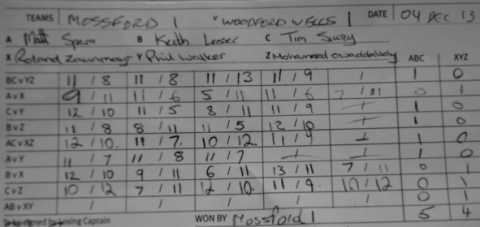 TEAMS MOSSFORD 1 v WOODFORD WELLS 1 DATE 04 DEC 13
A Matt Spero B Keith Lesser C Tim
X Roland Z Mohammed
BC v YZ 11 / 8 11 / 8 11 / 13 11 / 9 / 1 0
A v X 9 / 11 11 / 6 5 / 11 11 / 6 7 / 11 0 1
C v Y 12 / 10 11 / 5 8 / 11 11 / 9 / 1 0
B v Z 11 / 8 8 / 11 11 / 5 12 / 10 / 1 0
AC v XZ 12 / 10 11 / 7 10 / 12 11 / 9 / 1 0
A v Y 11 / 7 11 / 8 11 / 7 / / 1 0
B v X 12 / 10 9 / 11 6 / 11 13 / 11 7 / 11 0 1
C v Z 10 / 12 7 / 11 12 / 10 11 / 9 10 / 12 0 1
AB v XY / / / / / 0 1
To be signed by Losing Captain WON BY Mossford 1 5 4
ABC XYZ